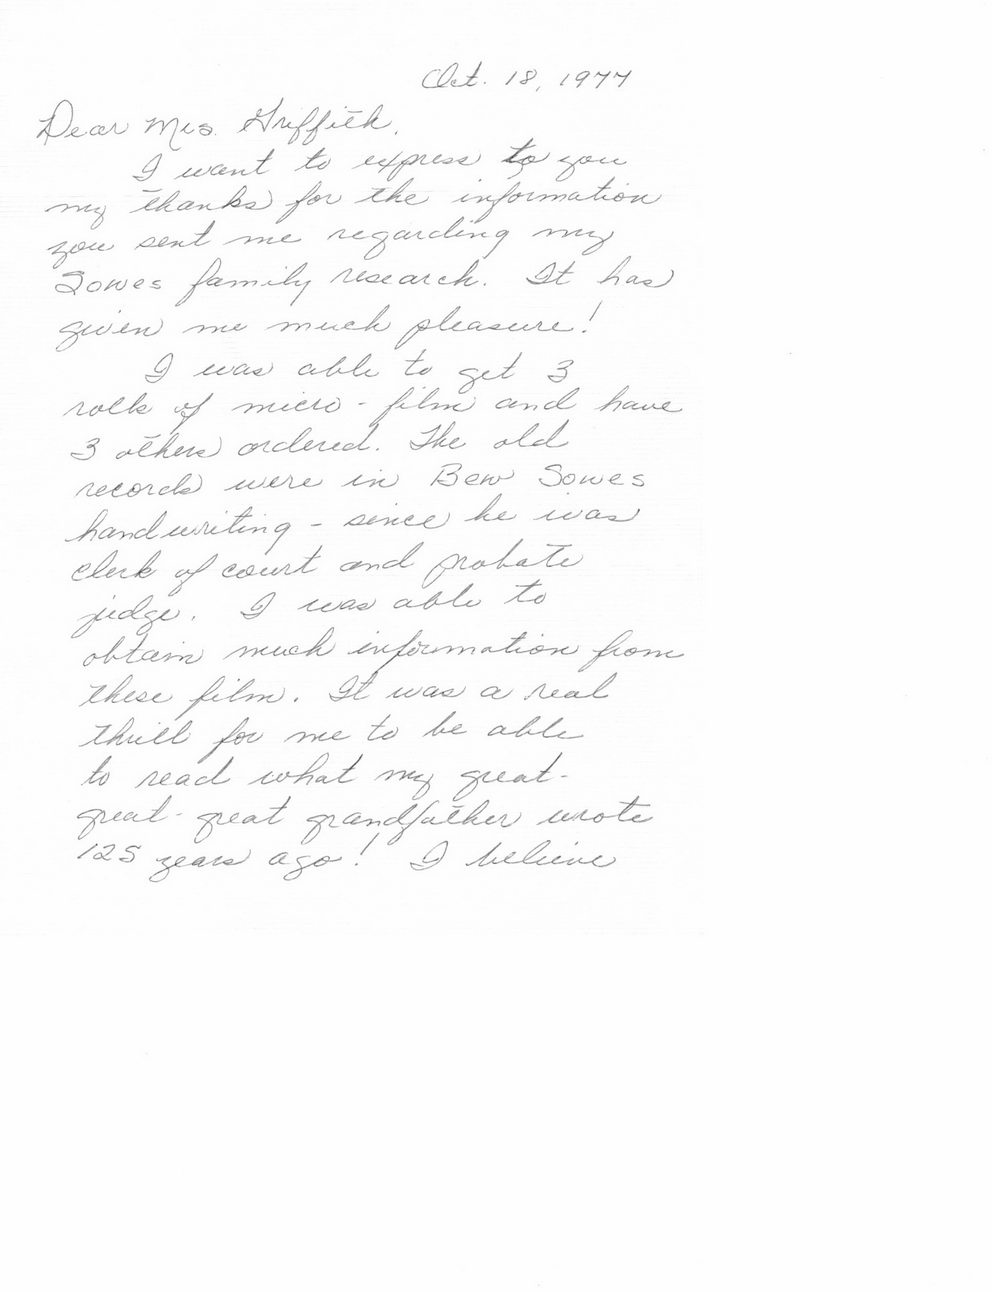 Oct. 18, 1977
Dear Mrs. Griffith,
I want to express to you
my thanks for the information
you sent me regarding my
Sowes family research. It has
given me much pleasure!
I was able to get 3
rolls of micro-film and have
3 others ordered. The old
records were in Bew Sowes
handwriting - since he was
clerk of court and probate
judge. I was able to
obtain much information from
these film. It was a real
thrill for me to be able
to read what my great-
great-great grandfather wrote
125 years ago! I believe